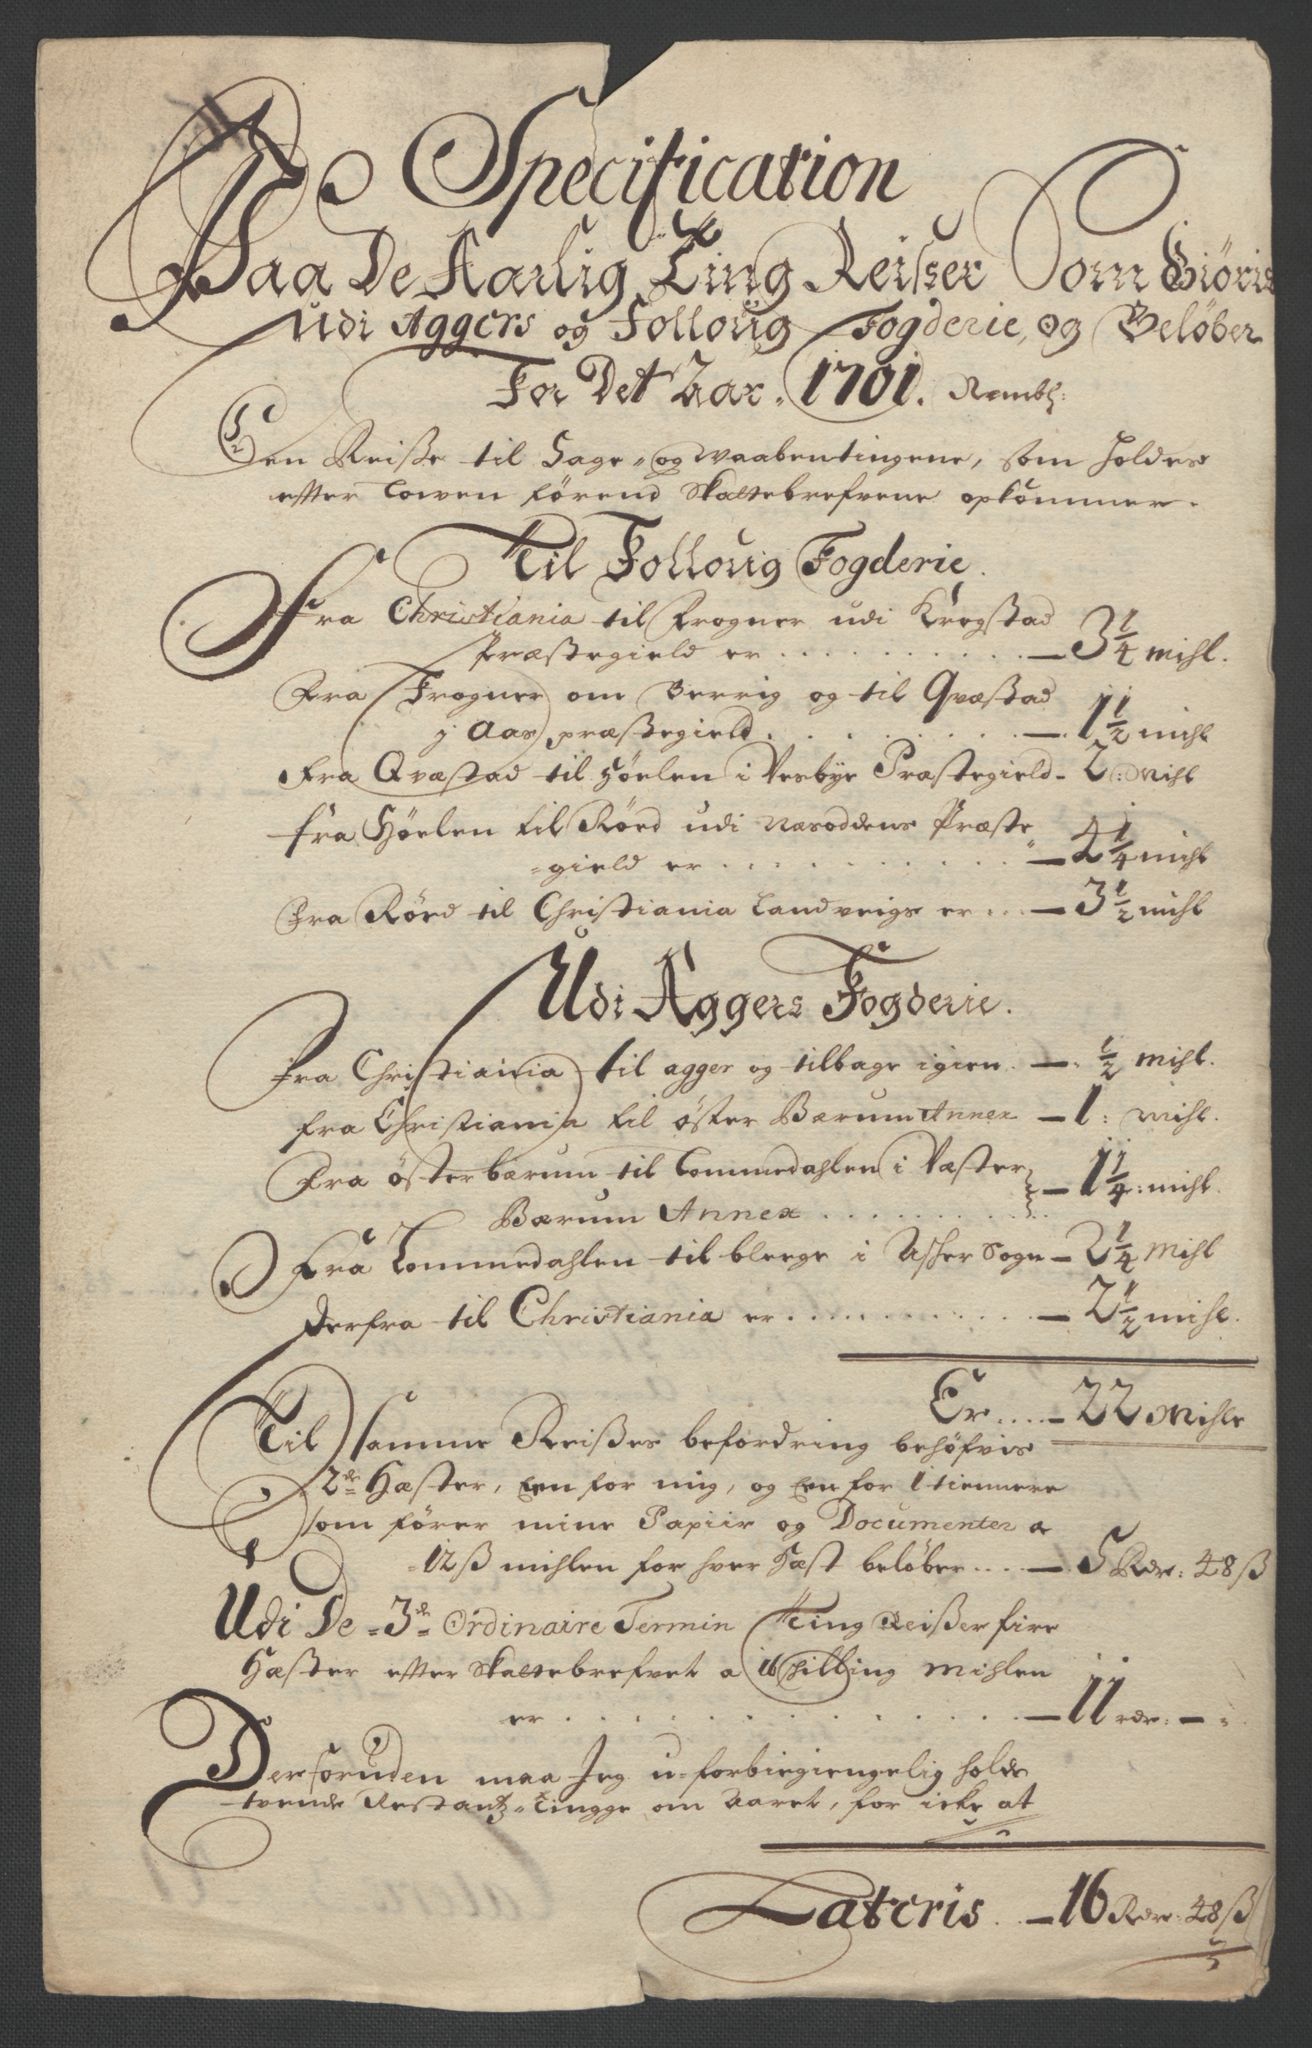 Specification
Paa De Aarlig Ting Reisser Som Giøris
udi Aggers og Follouig Fogderie, og Beløber
For Det Aar. 1701. Nembl:
En Reisse til Sage- og Waabentingene, som holdes
efter Lowen førend Skattebrefvene opkommer.
Til Follouig Fogderie.
Fra Christiania til Frogner udi Krogstad
Præstegield er . . . . . . . . . . — 3 1/4 mihl.
Fra Frogner om Berrig og til Qvæstad
j Aas præstegield . . . . . . . . . — 1 1/2 mihl
Fra Qvæstad til Høelen i Vesbye Præstegield - 2 : Mihl
fra Høelen til Rørd udi Næsoddens Præste
=gield er . . . . . . . . . . . . — 4 1/4 mihl
Fra Rørd til Christiania Landveigs er . . . — 3 1/2 mihl
Udi Aggers Fogderie.
Fra Christiania til agger og tilbage igien . —. 1/2 mihl.
fra Christiania til øster Bærum Annex — 1: mihl.
Fra østerbærum til Lommedahlen i Væster
Bærum Annex . . . . . . . . . — 1 1/4 : mihl.
Fra Lommedahlen til bleege i Asker Sogn — 2 1/4 Mihl
Derfra til Christiania er . . . . . . . . . . — 2 1/2 mihl.
Er . . . . — 22 Mihle
Til samme Reisses befordring behøfvis
2de Hæster, een for mig, og een for 1 tiennere
som fører mine Papiir og Documenter a
12 ß mihlen for hver Hæst beløber . . . . — 5 Rdr: 48 ß
Udi De 3de Ordinaire Termin Ting Reisser fire
Hæster efter Skattebrefvet a 16 shilling mihlen
er . . . . . . . . . . . . . . — 11 rdr: — :
Derforuden maa Jeg u-forbiegiengelig holde
tvende Restantz-Tingge om Aaret, for icke at
Lateris . . — 16 Rdr: 48 ß